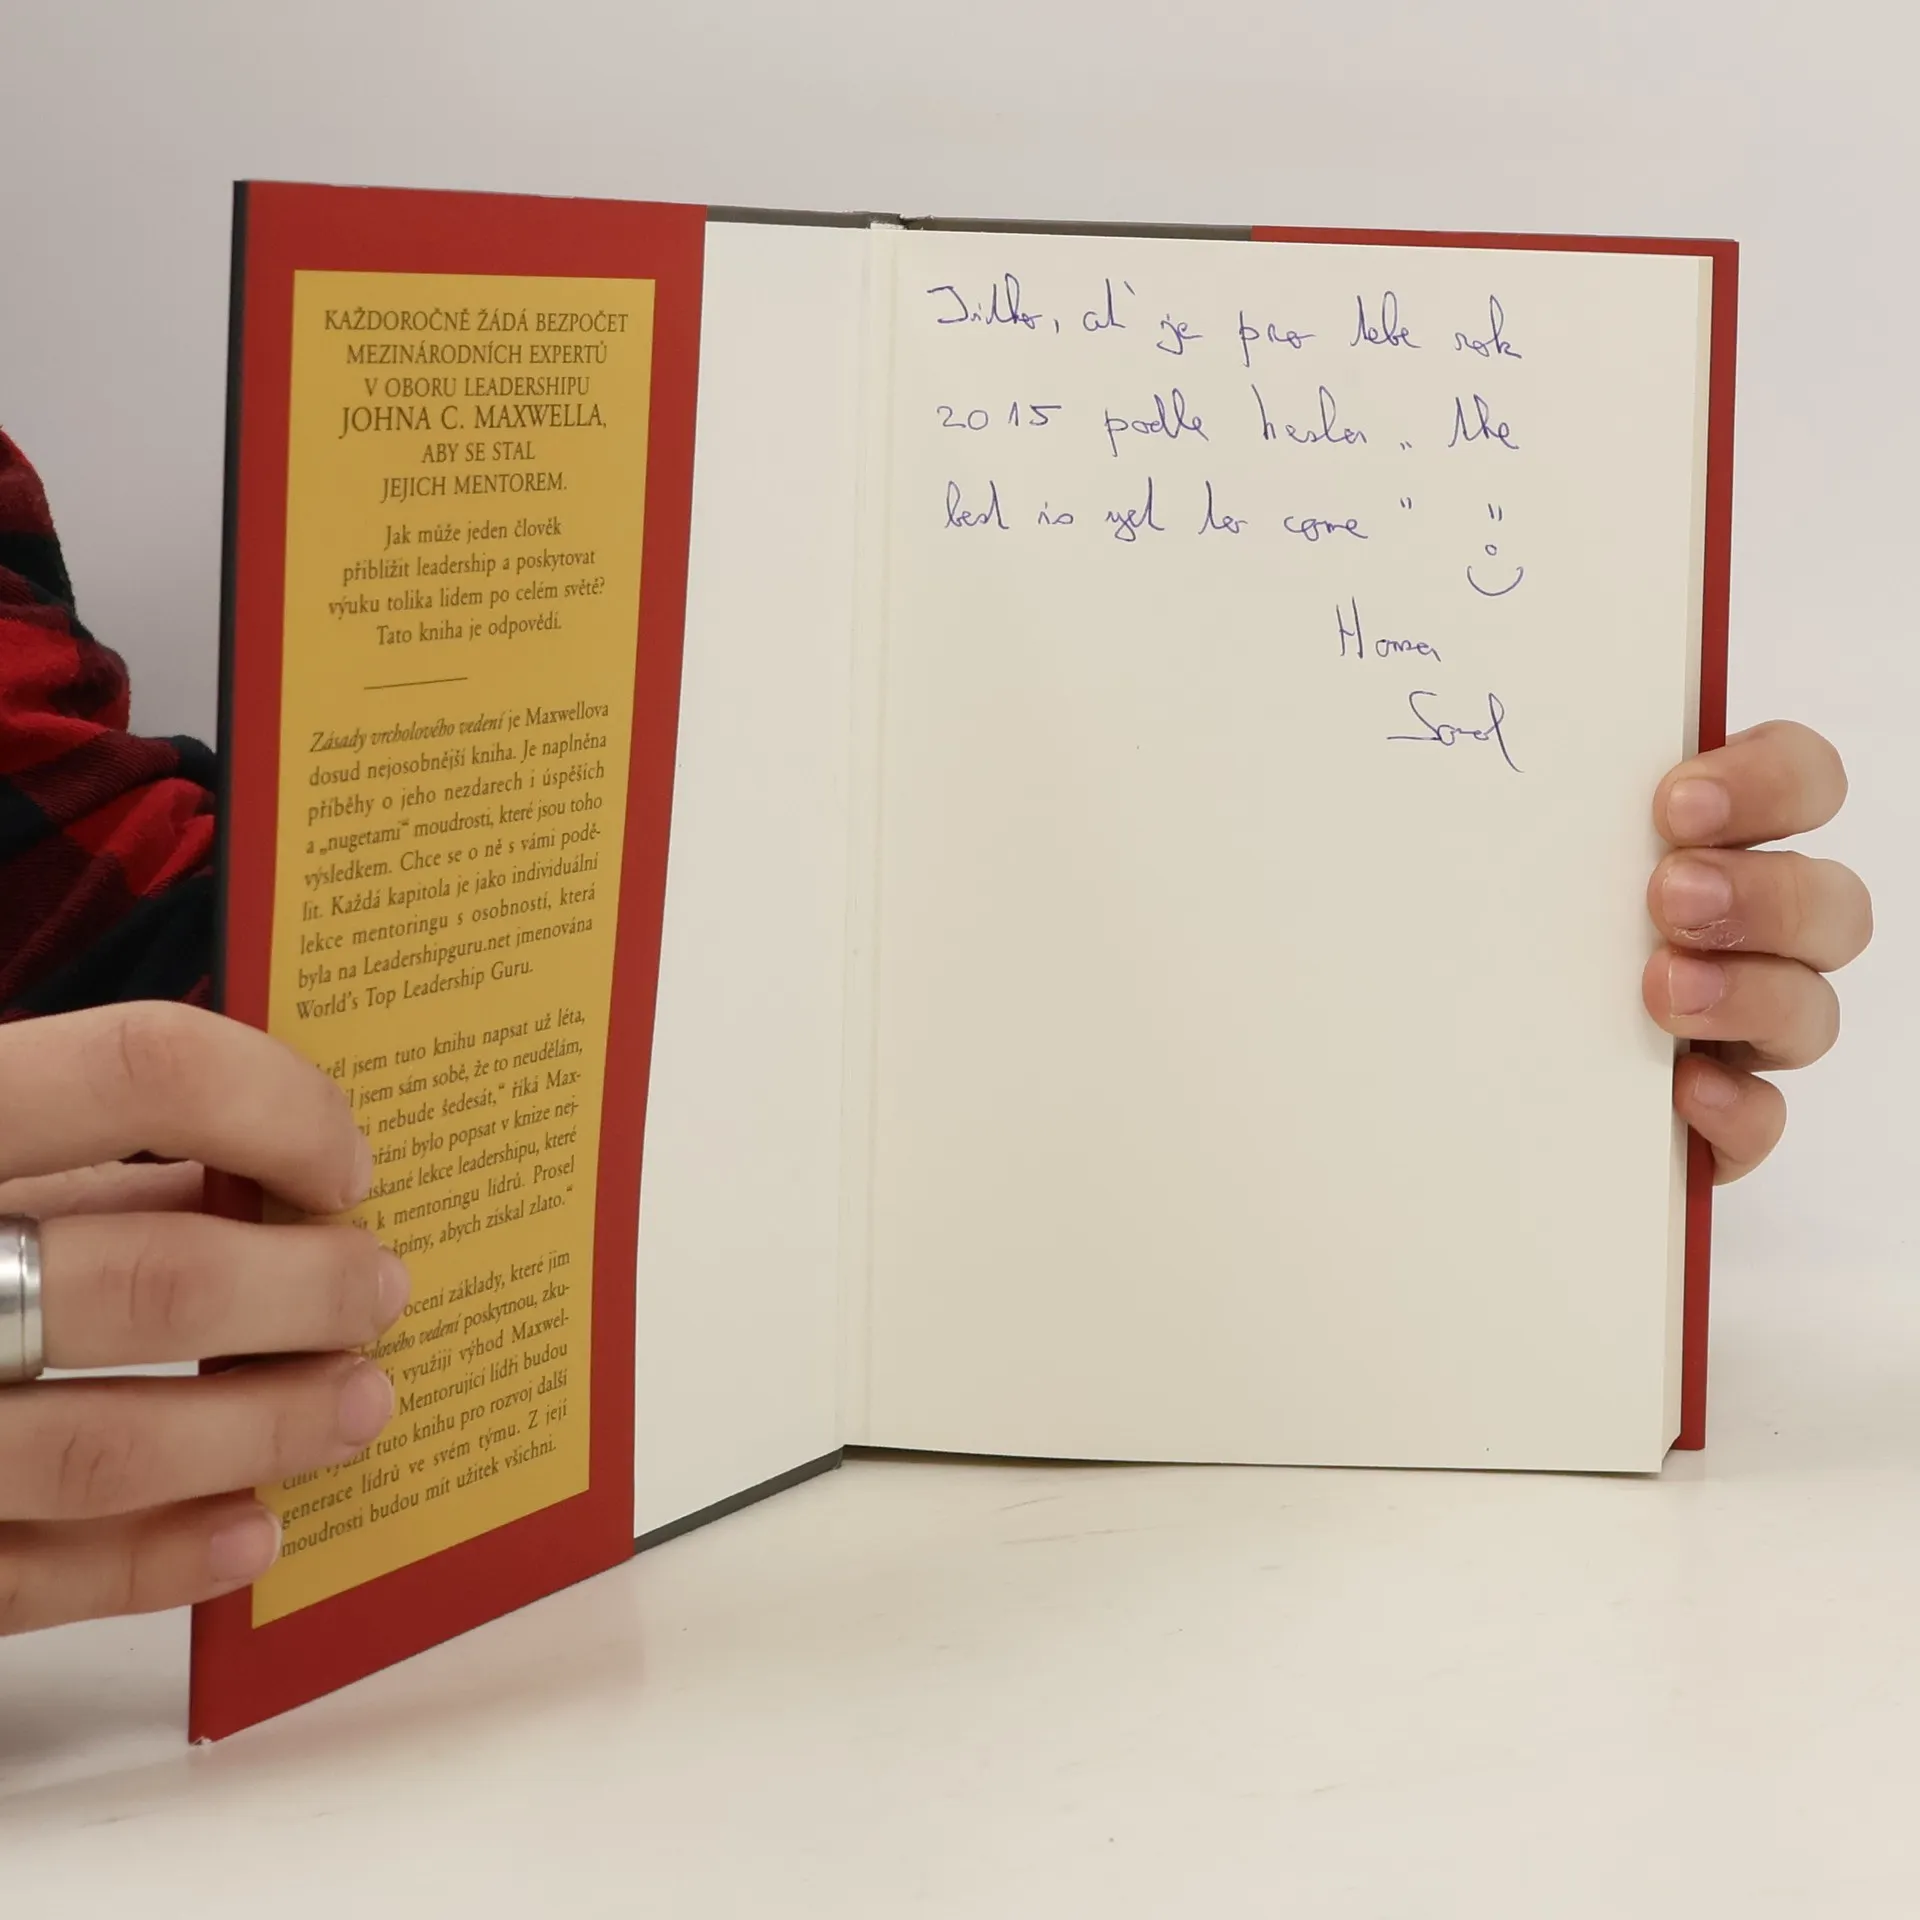 KAŽDOROČNĚ ŽÁDÁ BEZPOČET
MEZINÁRODNÍCH EXPERTŮ
V OBORU LEADERSHIPU
JOHNA C. MAXWELLA,
ABY SE STAL
JEJICH MENTOREM.
Jak může jeden člověk
přiblížit leadership a poskytovat
výuku tolika lidem po celém světě?
Tato kniha je odpovědí.
Zásady vrcholového vedení je Maxwellova
dosud nejosobnější kniha. Je naplněna
příběhy o jeho nezdarech i úspěších
a „nugetami“ moudrosti, které jsou toho
výsledkem. Chce se o ně s vámi podě-
lit. Každá kapitola je jako individuální
lekce mentoringu s osobností, která
byla na Leadershipguru.net jmenována
World's Top Leadership Guru.
jsem tuto knihu napsat už léta,
jsem sám sobě, že to neudělám,
nebude šedesát,“ říká Max-
bylo popsat v knize nej-
lekce leadershipu, které
k mentoringu lídrů. Prosel
špíny, abych získal zlato.“
ocení základy, které jim
vedení poskytnou, zku-
využijí výhod Maxwel-
Mentorující lídři budou
tuto knihu pro rozvoj další
generace lídrů ve svém týmu. Z její
moudrosti budou mít užitek všichni.
Jitko, ať je pro tebe rok
2015 podle hesla „the
best is yet to come"
Honza